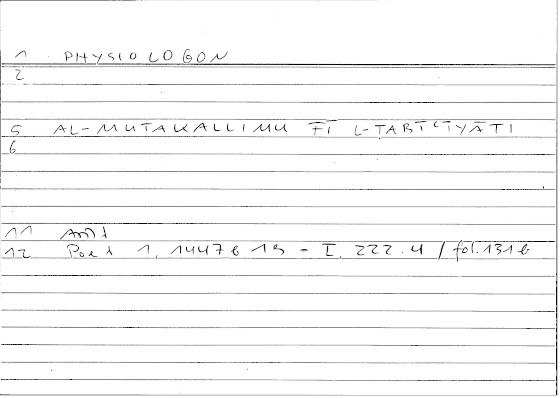 1 PHYSIOLOGON
2
5 AL-MUTAKALLIMU FĪ L-TABĪʿĪYĀTI
6
11
12 Poet 1, 1447b19 - I. 222.4 / fol. 131b